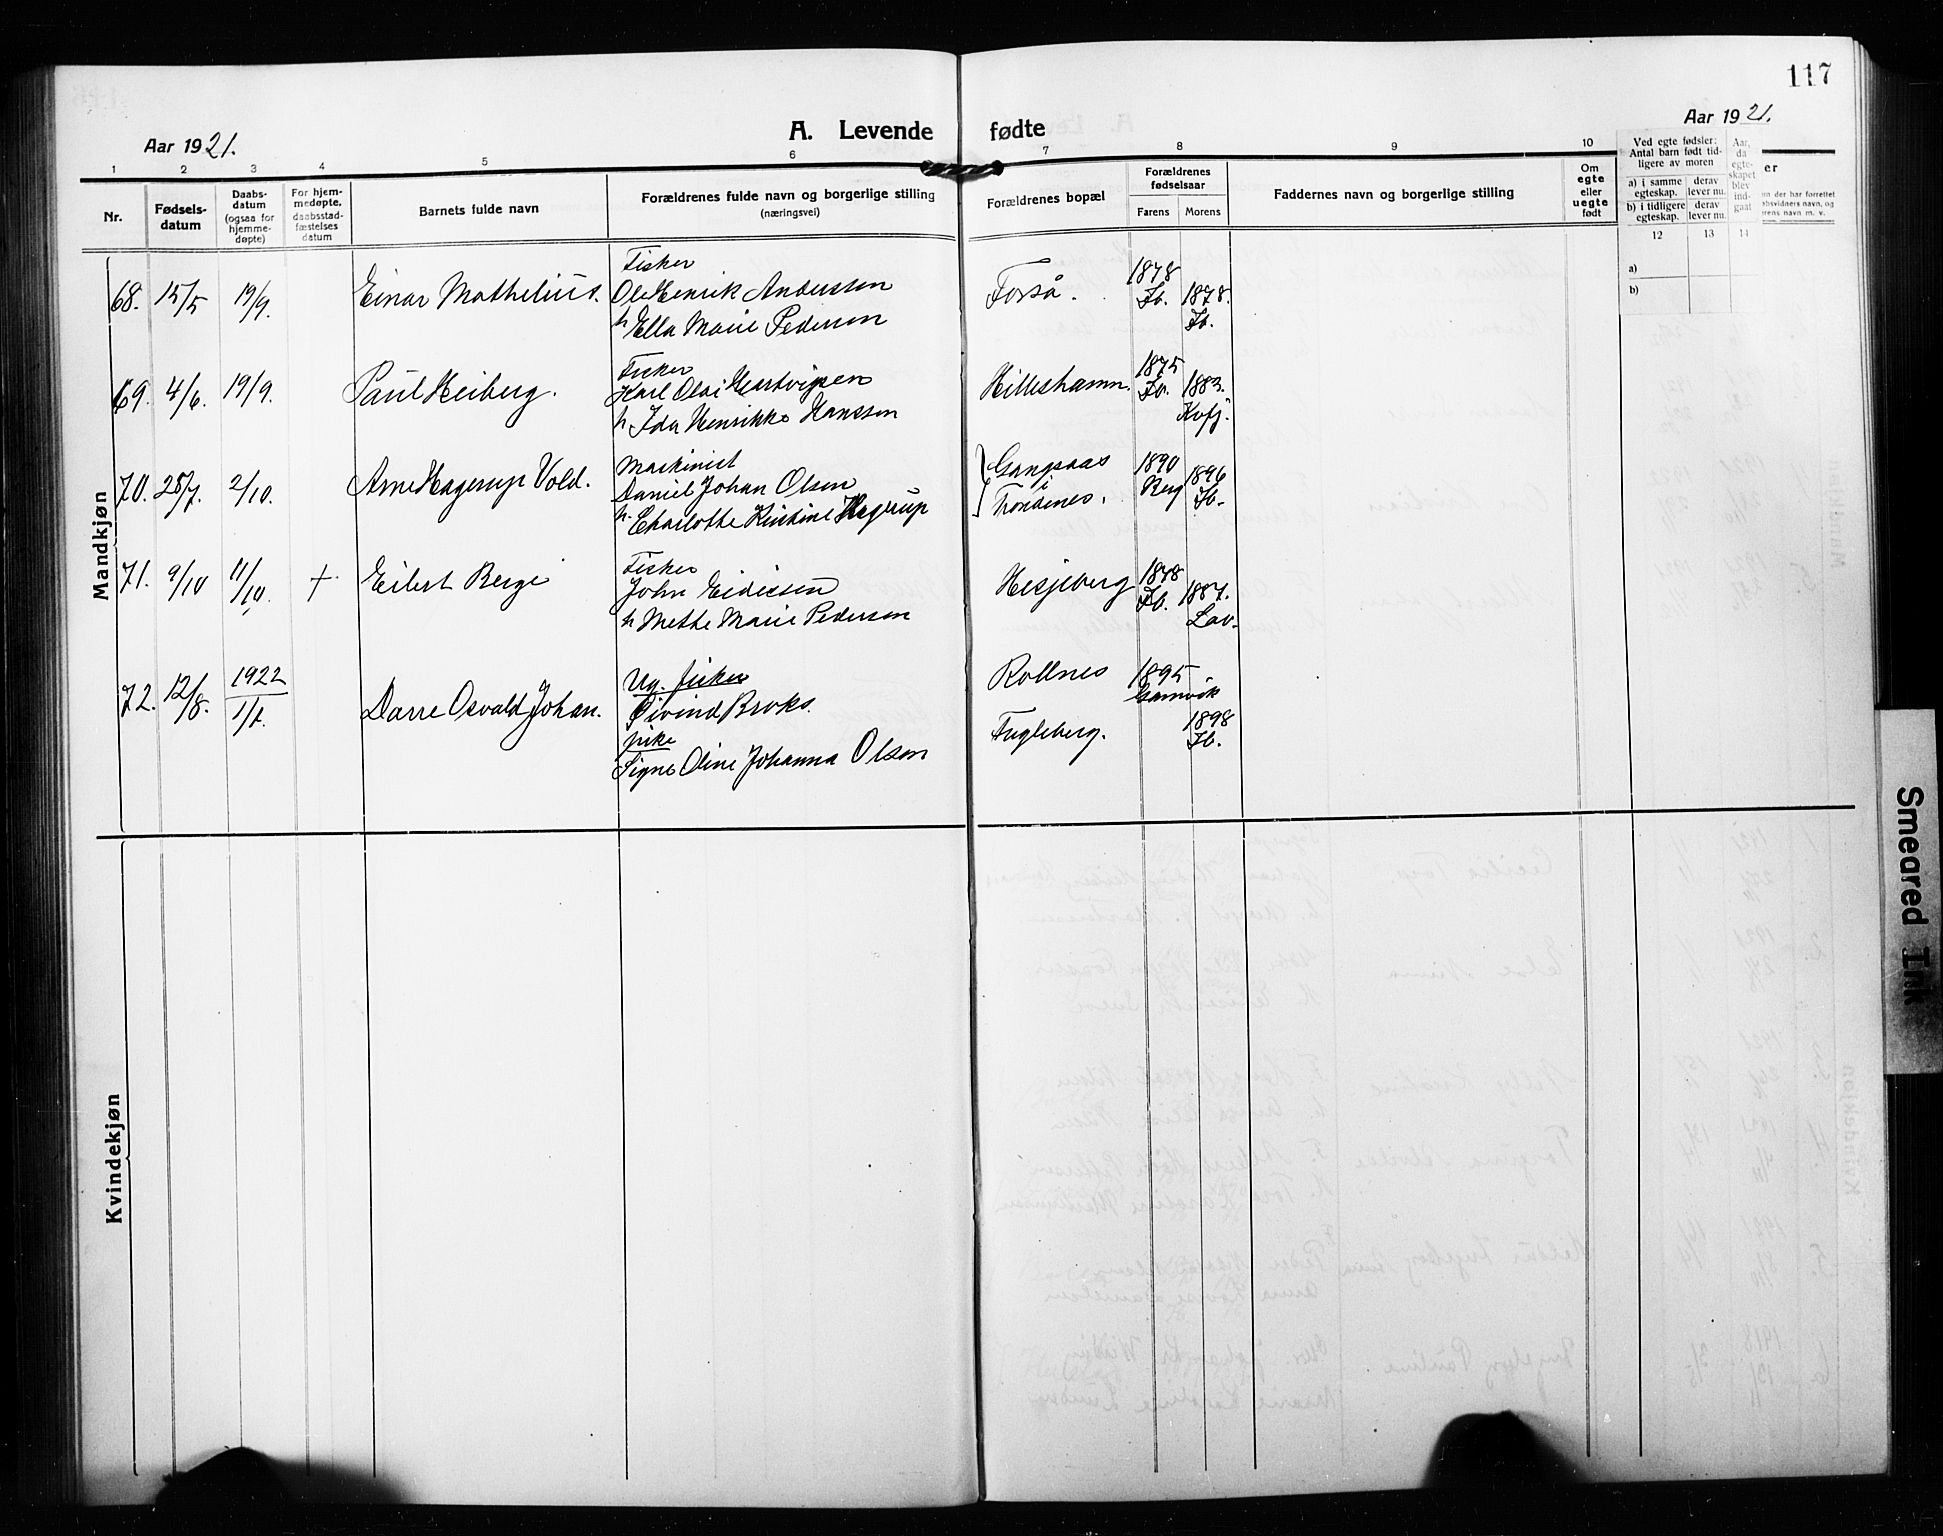 117
Aar 1921.
A. Levende fødte
Aar 1921.
1 2 3 4 5 6 7 8 9 10
Nr.
Fødsels-
datum
Daabs-
datum
(ogsaa for
hjemme-
døpte)
For hjem-
medøpte,
daabsstad-
fæstelses
datum
Barnets fulde navn
Forældrenes fulde navn og borgerlige stilling
(næringsvei)
Forældrenes bopæl
Forældrenes
fødselsaar
Farens Morens
Faddernes navn og borgerlige stilling
Om
egte
eller
uegte
født
Ved egte fødsler:
Antal barn født tid-
ligere av moren
a) i samme
egteskap.
derav
lever nu.
b) i tidligere
egteskap.
derav
lever nu.
Aar,
da
egte-
skapet
blev
ind-
gaat
er
12 13 14
a)
b)
Mandkjøn
68. 15/5 19/9. Einar Mathelius.
Fisker
Ole Henrik Anderssen
h Ella Marie Pedersen
Forså.
1878 Ib.
1878. Ib.
69. 4/6. 19/9. Paul Heiberg.
Fisker
Karl Olai Hartvigsen
h Ida Henrikke Hanssen
Hilleshamn.
1875 Ib.
1883. Kvfj.
70. 2/10. Arne Hagerup Vold.
Maskinist
Daniel Johan Olsen
h. Charlotte Kristine Hagerup
Gangsaas
i
Trondenes.
1890 Berg
1896 Ib.
71. 9/10 11/10. + Eilert Berge
Fisker
John Eidissen
h Mette Marie Pedersen
Hesjeberg
1878 Ib.
1887. Lav.
72. 12/8. 1922 1/1. Darre Osvald Johan.
Ug. fisker
Øivind Broks.
pike
Signe Oline Johanna Olsen
Rollnes
Fugleberg.
1895 Gamvik
1898 Ib.
Kvindekjøn
Smeared Ink